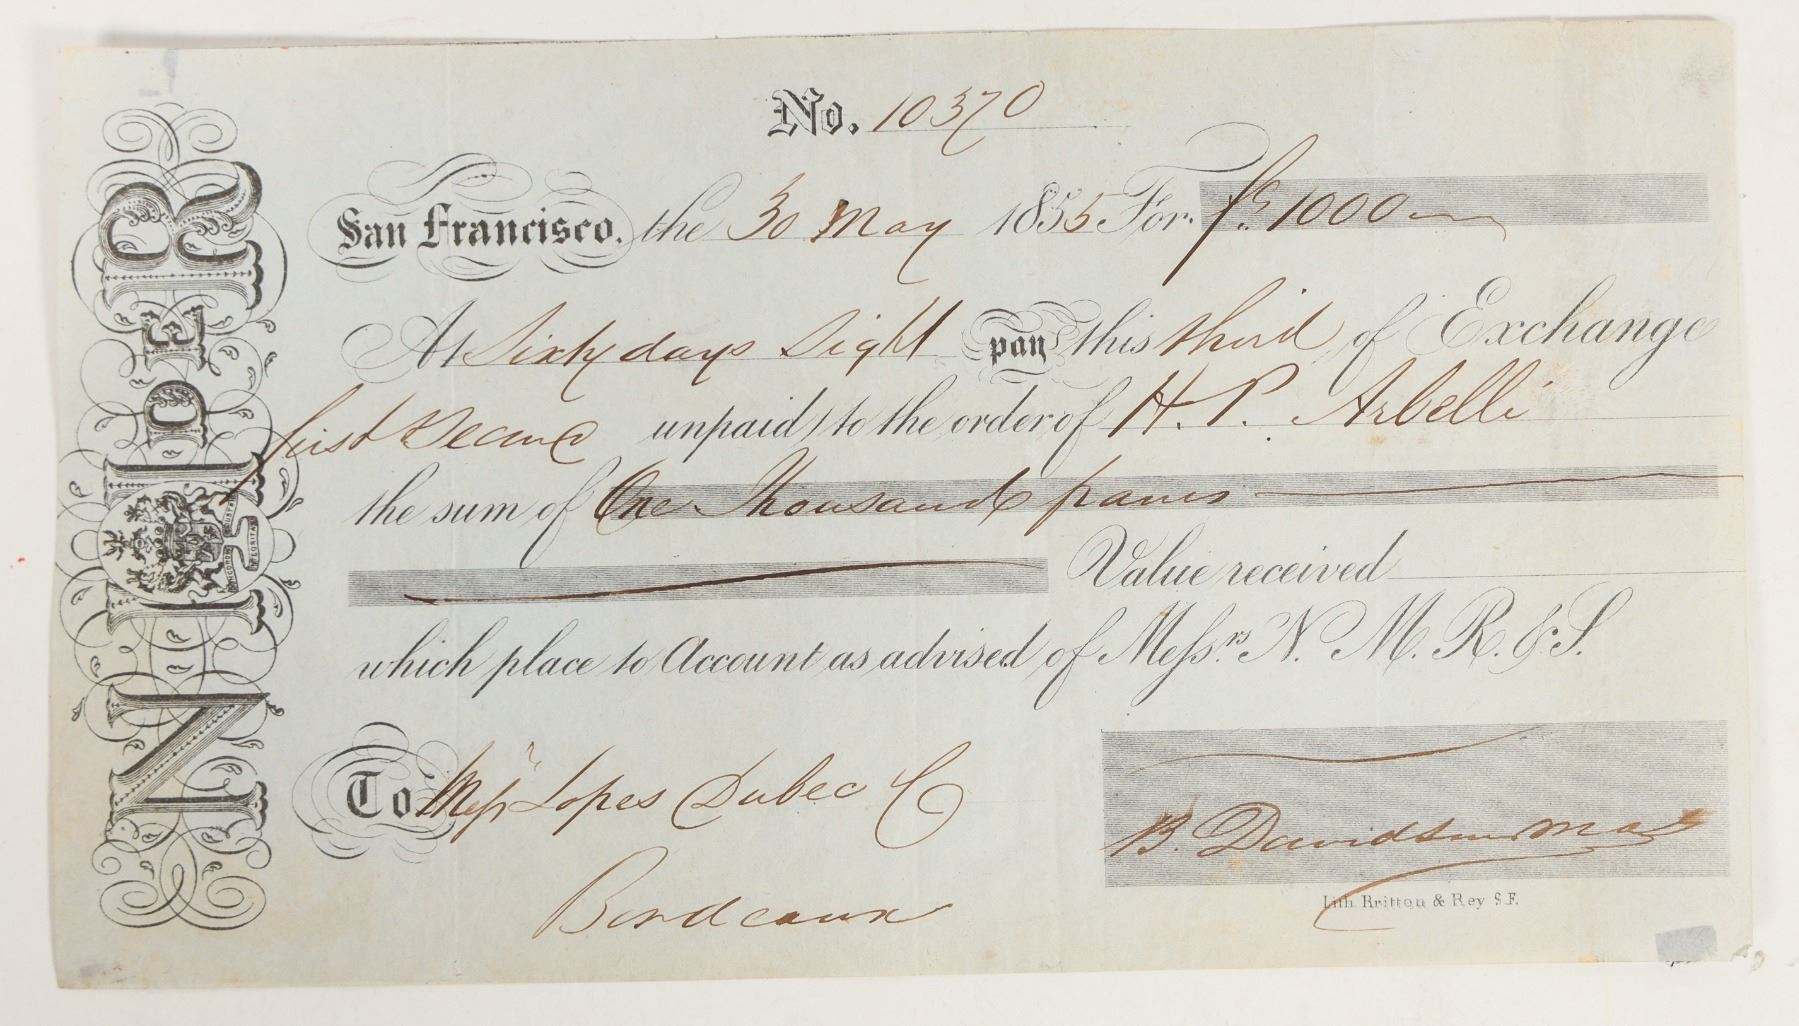 No. 10370
San Francisco, the 30 May 1855 For. fcs 1000
At Sixty days Sight pay this third of Exchange
first & Second unpaid) to the order of H. P. Arbelli
the sum of One Thousand francs
Value received
which place to Account as advised of Messrs N. M. R. & S.
To Messrs Lopes Dubec & Co
Bordeaux
B. Davidson
Lith Britton & Rey S.F.
CONCORDIA INDUSTRIA INTEGRITAS